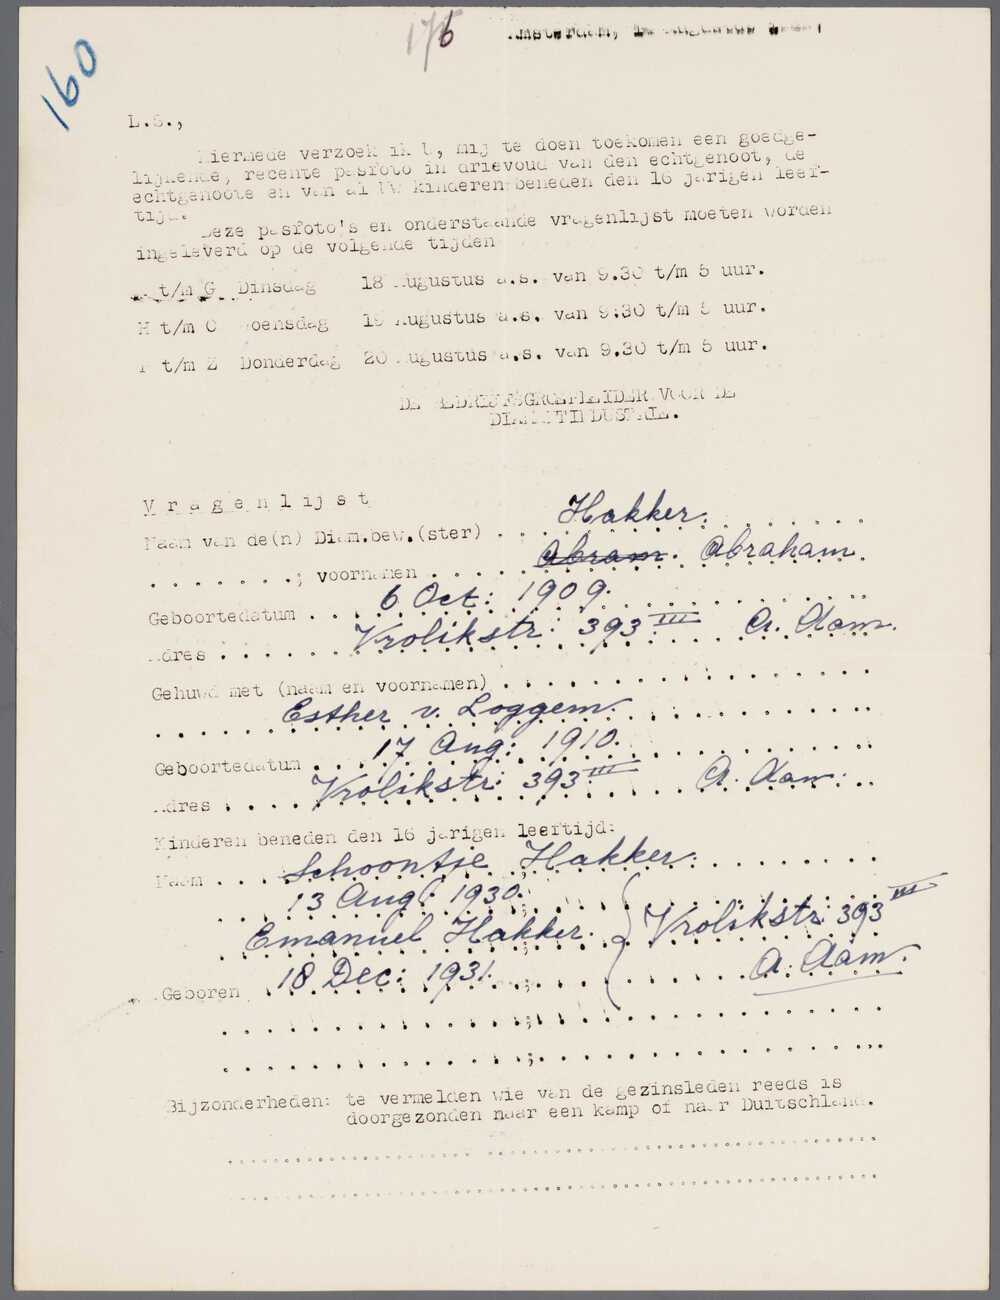 160
176
Amsterdam,
L.S.,
Hiermede verzoek ik U, mij te doen toekomen een goedge-
lijkende, recente pasfoto in drievoud van den echtgenoot, de
echtgenoote en van al Uw kinderen beneden den 16 jarigen leef-
tijd.
Deze pasfoto's en onderstaande vragenlijst moeten worden
ingeleverd op de volgende tijden
t/m G Dinsdag 18 Augustus a.s. van 9.30 t/m 5 uur.
H t/m O Woensdag 19 Augustus a.s. van 9:30 t/m 5 uur.
P t/m Z Donderdag 20 Augustus a.s. van 9.30 t/m 5 uur.
DE BEDRIJFSGROEPLEIDER VOOR DE
DIAMANTINDUSTRIE.
Vragenlijst
Naam van de(n) Diam.bew.(ster) . . . Hakker.
. . . . . . . ; voornamen . . . . . Abram. Abraham
Geboortedatum . . . . 6 Oct: 1909.
Adres : . . . . . Vrolikstr: 393 III A. dam.
Gehuwd met (naam en voornamen) . . . . . . . . . . . . . . .
Esther v. Loggem.
Geboortedatum . . . 17 Aug: 1910.
Adres . . . . Vrolikstr: 393 III A. dam.
Kinderen beneden den 16 jarigen leeftijd:
Naam . . . Schoontje Hakker.
13 Aug: 1930.
Emanuel Hakker. Vrolikstr. 393 III
Geboren 18 Dec: 1931. A. dam.
Bijzonderheden: te vermelden wie van de gezinsleden reeds is
doorgezonden naar een kamp of naar Duitschland.